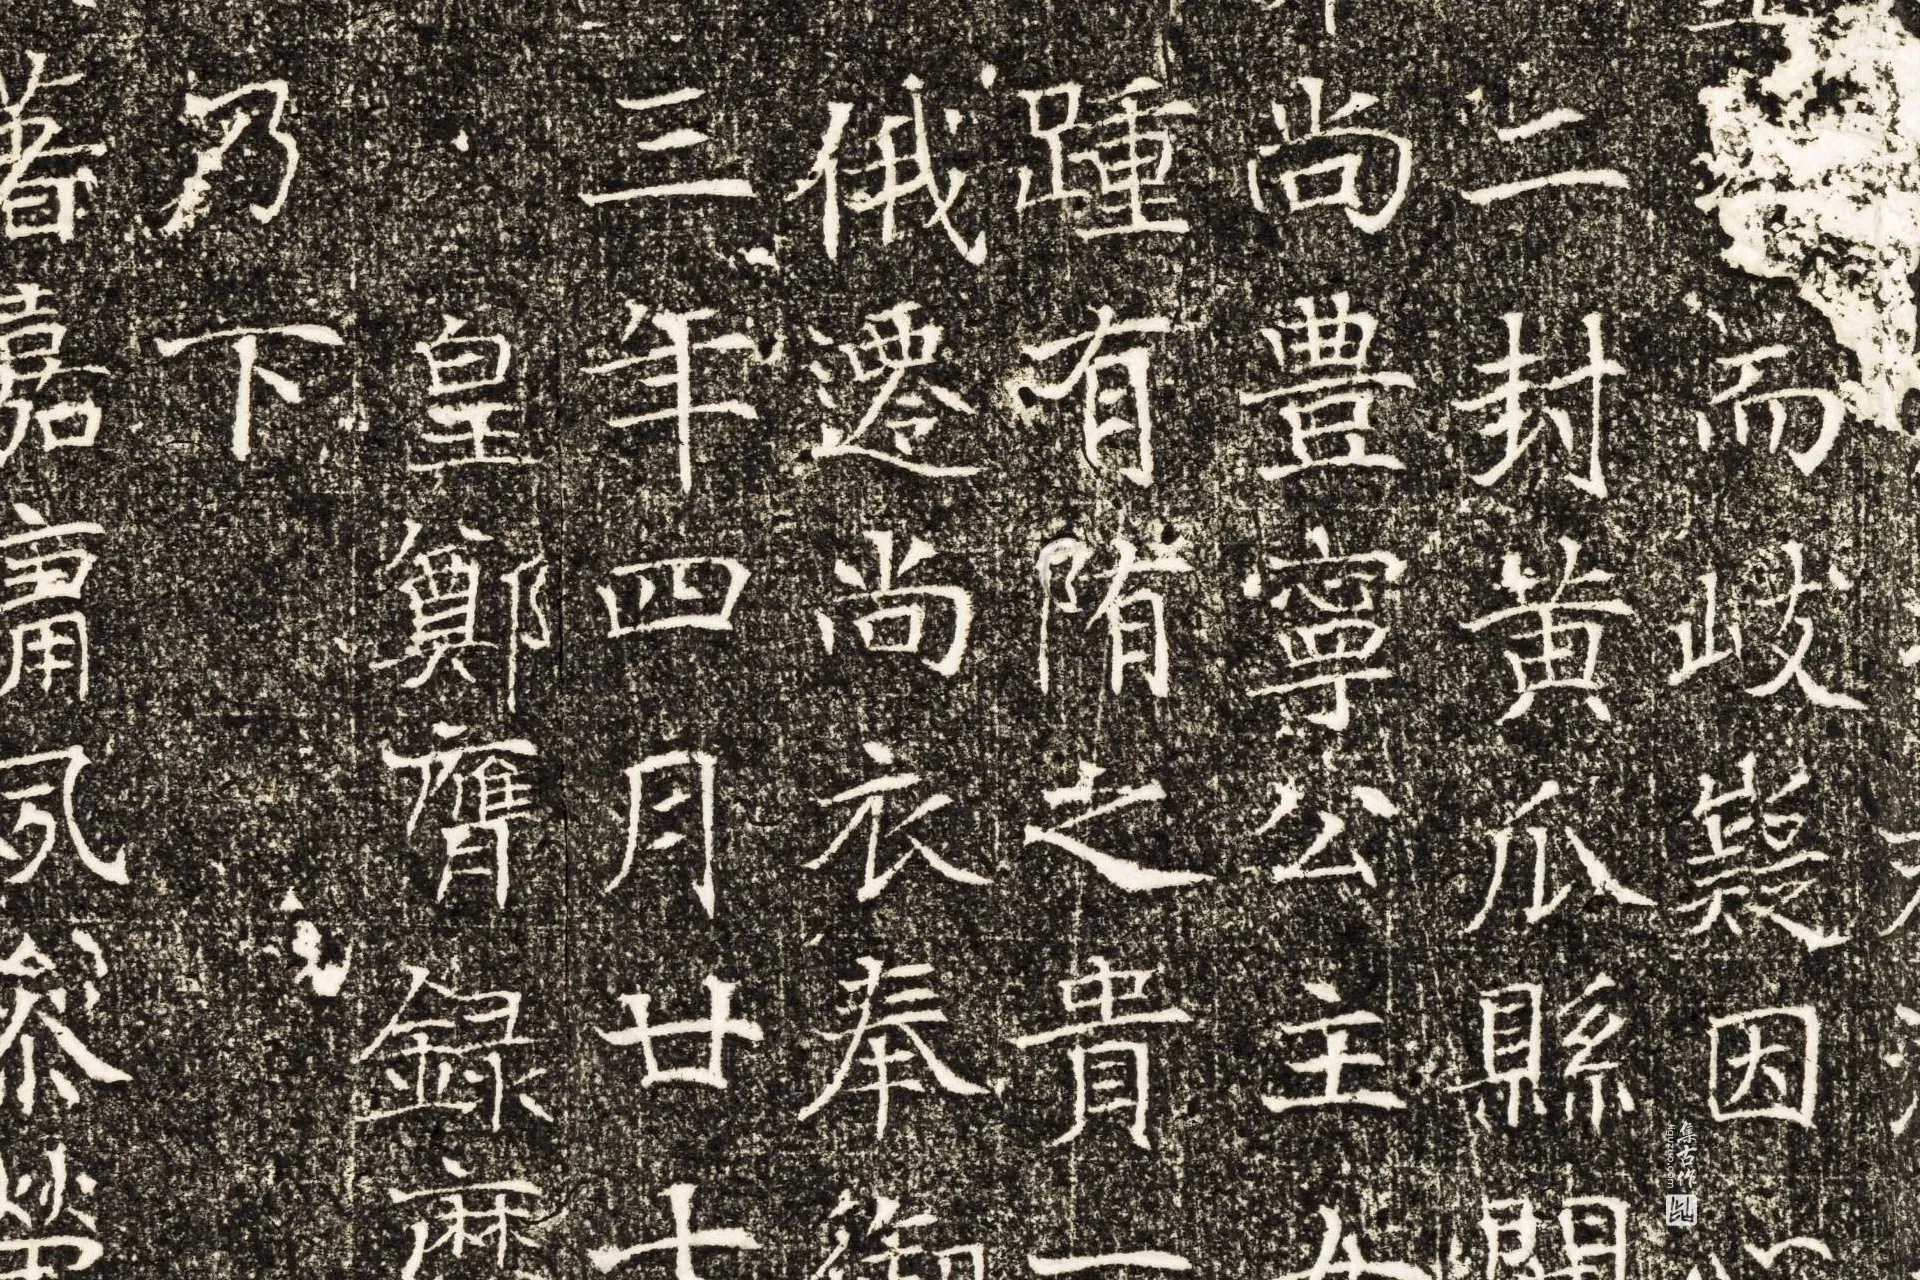 而岐嶷因
二封黄瓜縣開
尚豐寧公主女
踵有隋之貴一
俄遷尚衣奉御
三年四月廿七
皇鄭膺錄麻
乃下
著嘉庸夙參榮
集古作